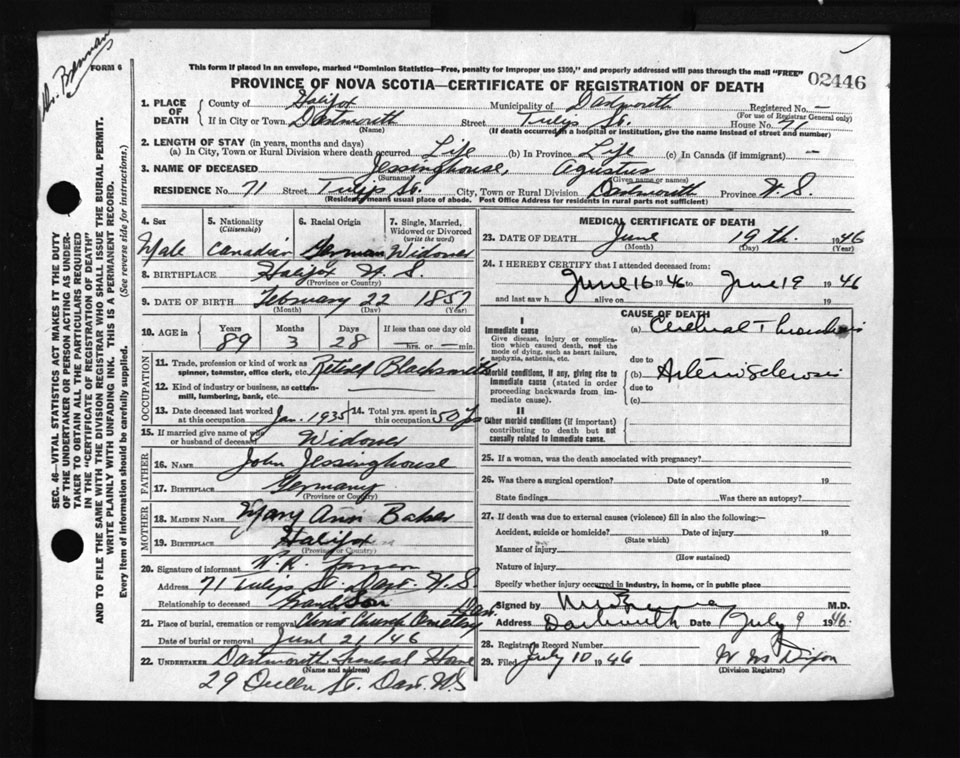 Dr. Brennan
FORM 6
This form if placed in an envelope, marked "Dominion Statistics—Free, penalty for improper use $300," and properly addressed will pass through the mail "FREE"
02446
PROVINCE OF NOVA SCOTIA—CERTIFICATE OF REGISTRATION OF DEATH
SEC. 46—VITAL STATISTICS ACT MAKES IT THE DUTY
OF THE UNDERTAKER OR PERSON ACTING AS UNDER-
TAKER TO OBTAIN ALL THE PARTICULARS REQUIRED
IN THE "CERTIFICATE OF REGISTRATION OF DEATH"
AND TO FILE THE SAME WITH THE DIVISION REGISTRAR WHO SHALL ISSUE THE BURIAL PERMIT.
WRITE PLAINLY WITH UNFADING INK. THIS IS A PERMANENT RECORD.
Every item of information should be carefully supplied. (See reverse side for instructions.)
1. PLACE OF DEATH
County of Halifax Municipality of Dartmouth Registered No. —
(For use of Registrar General only)
If in City or Town Dartmouth Street Tulip St. House No. 71
(Name) (If death occurred in a hospital or institution, give the name instead of street and number)
2. LENGTH OF STAY (in years, months and days)
(a) In City, Town or Rural Division where death occurred Life (b) In Province Life (c) In Canada (if immigrant) —
3. NAME OF DECEASED Jessinghouse, Agustus
(Surname) (Given name or names)
RESIDENCE No. 71 Street Tulip St. City, Town or Rural Division Dartmouth Province N.S.
(Residency means usual place of abode. Post Office Address for residents in rural parts not sufficient)
4. Sex Male
5. Nationality (Citizenship) Canadian
6. Racial Origin German
7. Single, Married, Widowed or Divorced (write the word) Widower
8. BIRTHPLACE Halifax N.S.
(Province or Country)
9. DATE OF BIRTH February 22 1857
(Month) (Day) (Year)
10. AGE in Years 89 Months 3 Days 28 If less than one day — hrs. or — min.
OCCUPATION
11. Trade, profession or kind of work as spinner, teamster, office clerk, etc. Retired Blacksmith
12. Kind of industry or business, as cotton-mill, lumbering, bank, etc.
13. Date deceased last worked at this occupation Jan. 1935
14. Total yrs. spent in this occupation 50 Yrs
15. If married give name of wife or husband of deceased Widower
FATHER
16. NAME John Jessinghouse
17. BIRTHPLACE Germany
(Province or Country)
MOTHER
18. MAIDEN NAME Mary Ann Baker
19. BIRTHPLACE Halifax
(Province or Country)
20. Signature of informant W.R.
Address 71 Tulip St. Dart. N.S.
Relationship to deceased Grand Son
21. Place of burial, cremation or removal Christ Church Cemetery Dar.
Date of burial or removal June 21/46
22. UNDERTAKER Dartmouth Funeral Home
(Name and address)
29 Queen St. Dar. N.S
MEDICAL CERTIFICATE OF DEATH
23. DATE OF DEATH June 19th. 1946
(Month) (Day) (Year)
24. I HEREBY CERTIFY that I attended deceased from:
June 16 1946 to June 19 1946
and last saw h alive on 19
CAUSE OF DEATH
I
Immediate cause (a) Cerebral Thrombosis
Give disease, injury or complication which caused death, not the mode of dying, such as heart failure, asphyxia, asthenia, etc.
due to
Morbid conditions, if any, giving rise to immediate cause (stated in order proceeding backwards from immediate cause) (b) Arteriosclerosis
due to
(c)
II
Other morbid conditions (if important) contributing to death but not causally related to immediate cause.
25. If a woman, was the death associated with pregnancy?
26. Was there a surgical operation? Date of operation 19
State findings Was there an autopsy?
27. If death was due to external causes (violence) fill in also the following:—
Accident, suicide or homicide? Date of injury 19
(State which)
Manner of injury
(How sustained)
Nature of injury
Specify whether injury occurred in industry, in home, or in public place
Signed by M.D.
Address Dartmouth Date July 9 1946
28. Registrars Record Number
29. Filed July 10 1946
(Division Registrar)